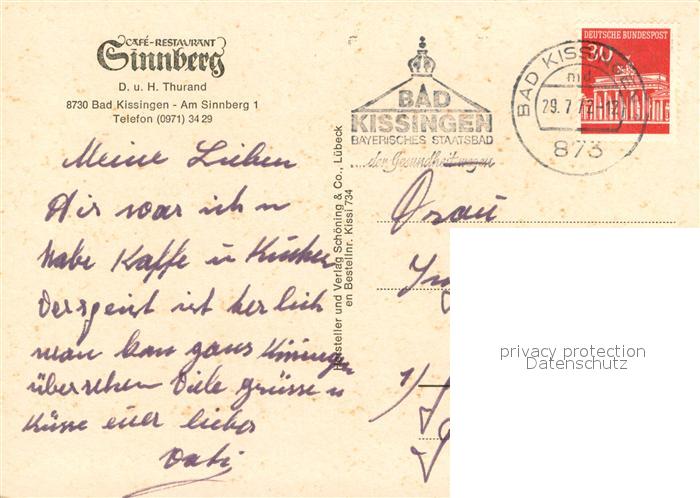 CAFÉ-RESTAURANT
Sinnberg
D. u. H. Thurand
8730 Bad Kissingen - Am Sinnberg 1
Telefon (0971) 34 29
BAD
KISSINGEN
BAYERISCHES STAATSBAD
...der Gesundheit wegen
BAD KISSINGEN
29.7.72-12
873
DEUTSCHE BUNDESPOST
30
Meine Lieben
Hir war ich u
habe Kaffe u Kuchen
Verspeist ist herlich
man kan gans Kissingen
übersehen Viele grüsse u
Küsse euer lieber
Vati
Hersteller und Verlag Schöning & Co., Lübeck
en Bestellnr. Kissi 734
Frau
privacy protection
Datenschutz